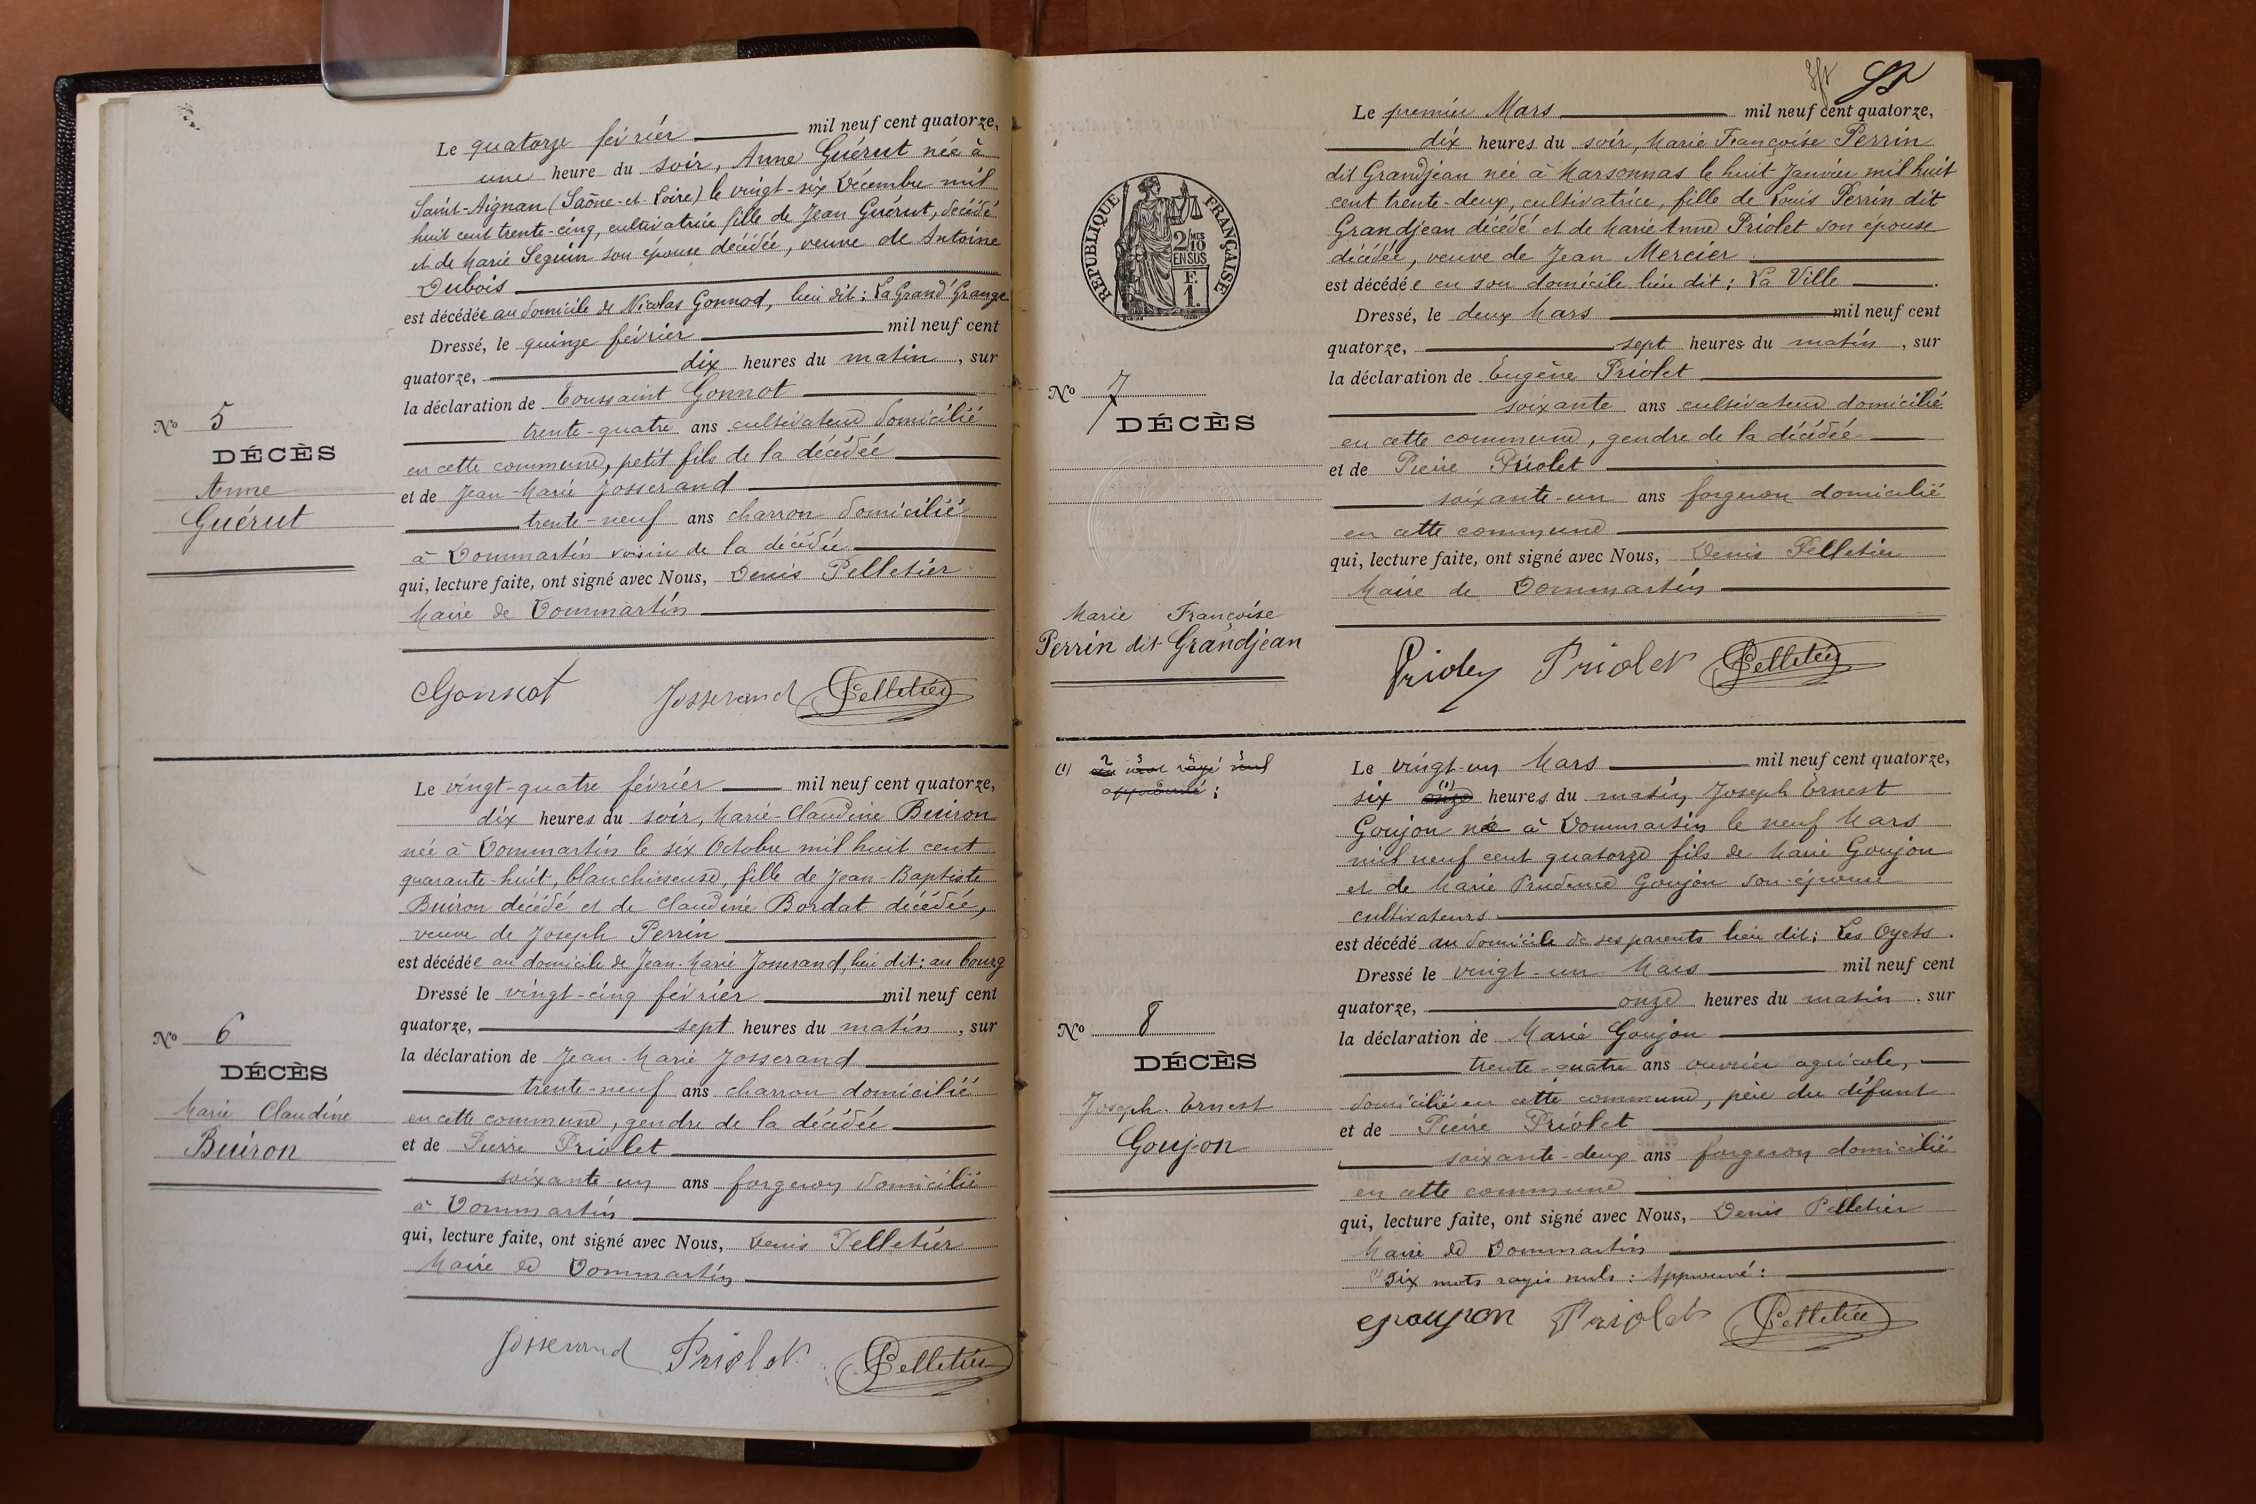 Le quatorze février mil neuf cent quatorze,
une heure du soir, Anne Guérut née à
Saint-Aignan (Saône-et-Loire) le vingt-six Décembre mil
huit cent trente-cinq, cultivatrice fille de Jean Guérut, décédé
et de Marie Seguin son épouse décédée, veuve de Antoine
Dubois
est décédée au domicile de Nicolas Gonnod, lieu dit : La Grand'Grange
Dressé, le quinze février mil neuf cent
quatorze, dix heures du matin, sur
la déclaration de Toussaint Gonnot
trente-quatre ans cultivateur domicilié
en cette commune, petit fils de la décédée
et de Jean-Marie Josserand
trente-neuf ans charron domicilié
à Dommartin voisin de la décédée
qui, lecture faite, ont signé avec Nous, Denis Pelletier
Maire de Dommartin
No 5
DÉCÈS
Anne
Guérut
Gonnot Josserand Pelletier
Le vingt-quatre février mil neuf cent quatorze,
dix heures du soir, Marie-Claudine Buiron
née à Dommartin le six Octobre mil huit cent
quarante-huit, blanchisseuse, fille de Jean-Baptiste
Buiron décédé et de Claudine Bordat décédée,
veuve de Joseph Perrin
est décédée au domicile de Jean-Marie Josserand, lieu dit : au bourg
Dressé le vingt-cinq février mil neuf cent
quatorze, sept heures du matin, sur
la déclaration de Jean-Marie Josserand
trente-neuf ans charron domicilié
en cette commune, gendre de la décédée
et de Pierre Priolet
soixante-un ans forgeron domicilié
à Dommartin
qui, lecture faite, ont signé avec Nous, Denis Pelletier
Maire de Dommartin
No 6
DÉCÈS
Marie Claudine
Buiron
Josserand Priolet Pelletier
Le premier Mars mil neuf cent quatorze,
dix heures du soir, Marie Françoise Perrin
dit Grandjean née à Marsonnas le huit Janvier mil huit
cent trente-deux, cultivatrice, fille de Louis Perrin dit
Grandjean décédé et de Marie Anne Priolet son épouse
décédée, veuve de Jean Mercier
est décédée en son domicile lieu dit : La Ville
Dressé, le deux Mars mil neuf cent
quatorze, sept heures du matin, sur
la déclaration de Eugène Priolet
soixante ans cultivateur domicilié
en cette commune, gendre de la décédée
et de Pierre Priolet
soixante-un ans forgeron domicilié
en cette commune
qui, lecture faite, ont signé avec Nous, Denis Pelletier
Maire de Dommartin
RÉPUBLIQUE FRANÇAISE
2/10
EN SUS
F.
1.
No 7
DÉCÈS
Marie Françoise
Perrin dit Grandjean
Priolet Priolet Pelletier
(1) un mot rayé nul
approuvé :
Le vingt-un Mars mil neuf cent quatorze,
six onze (1) heures du matin, Joseph Ernest
Goujon né à Dommartin le neuf Mars
mil neuf cent quatorze fils de Marie Goujon
et de Marie Prudence Goujon son épouse
cultivateurs
est décédé au domicile de ses parents lieu dit : Les Oyets.
Dressé le vingt-un Mars mil neuf cent
quatorze, onze heures du matin. sur
la déclaration de Marie Goujon
trente-quatre ans ouvrier agricole,
domicilié en cette commune, père du défunt
et de Pierre Priolet
soixante-deux ans forgeron domicilié
en cette commune
qui, lecture faite, ont signé avec Nous, Denis Pelletier
Maire de Dommartin
(1) Six mots rayés nuls : Approuvé :
No 8
DÉCÈS
Joseph Ernest
Goujon
Priolet Pelletier